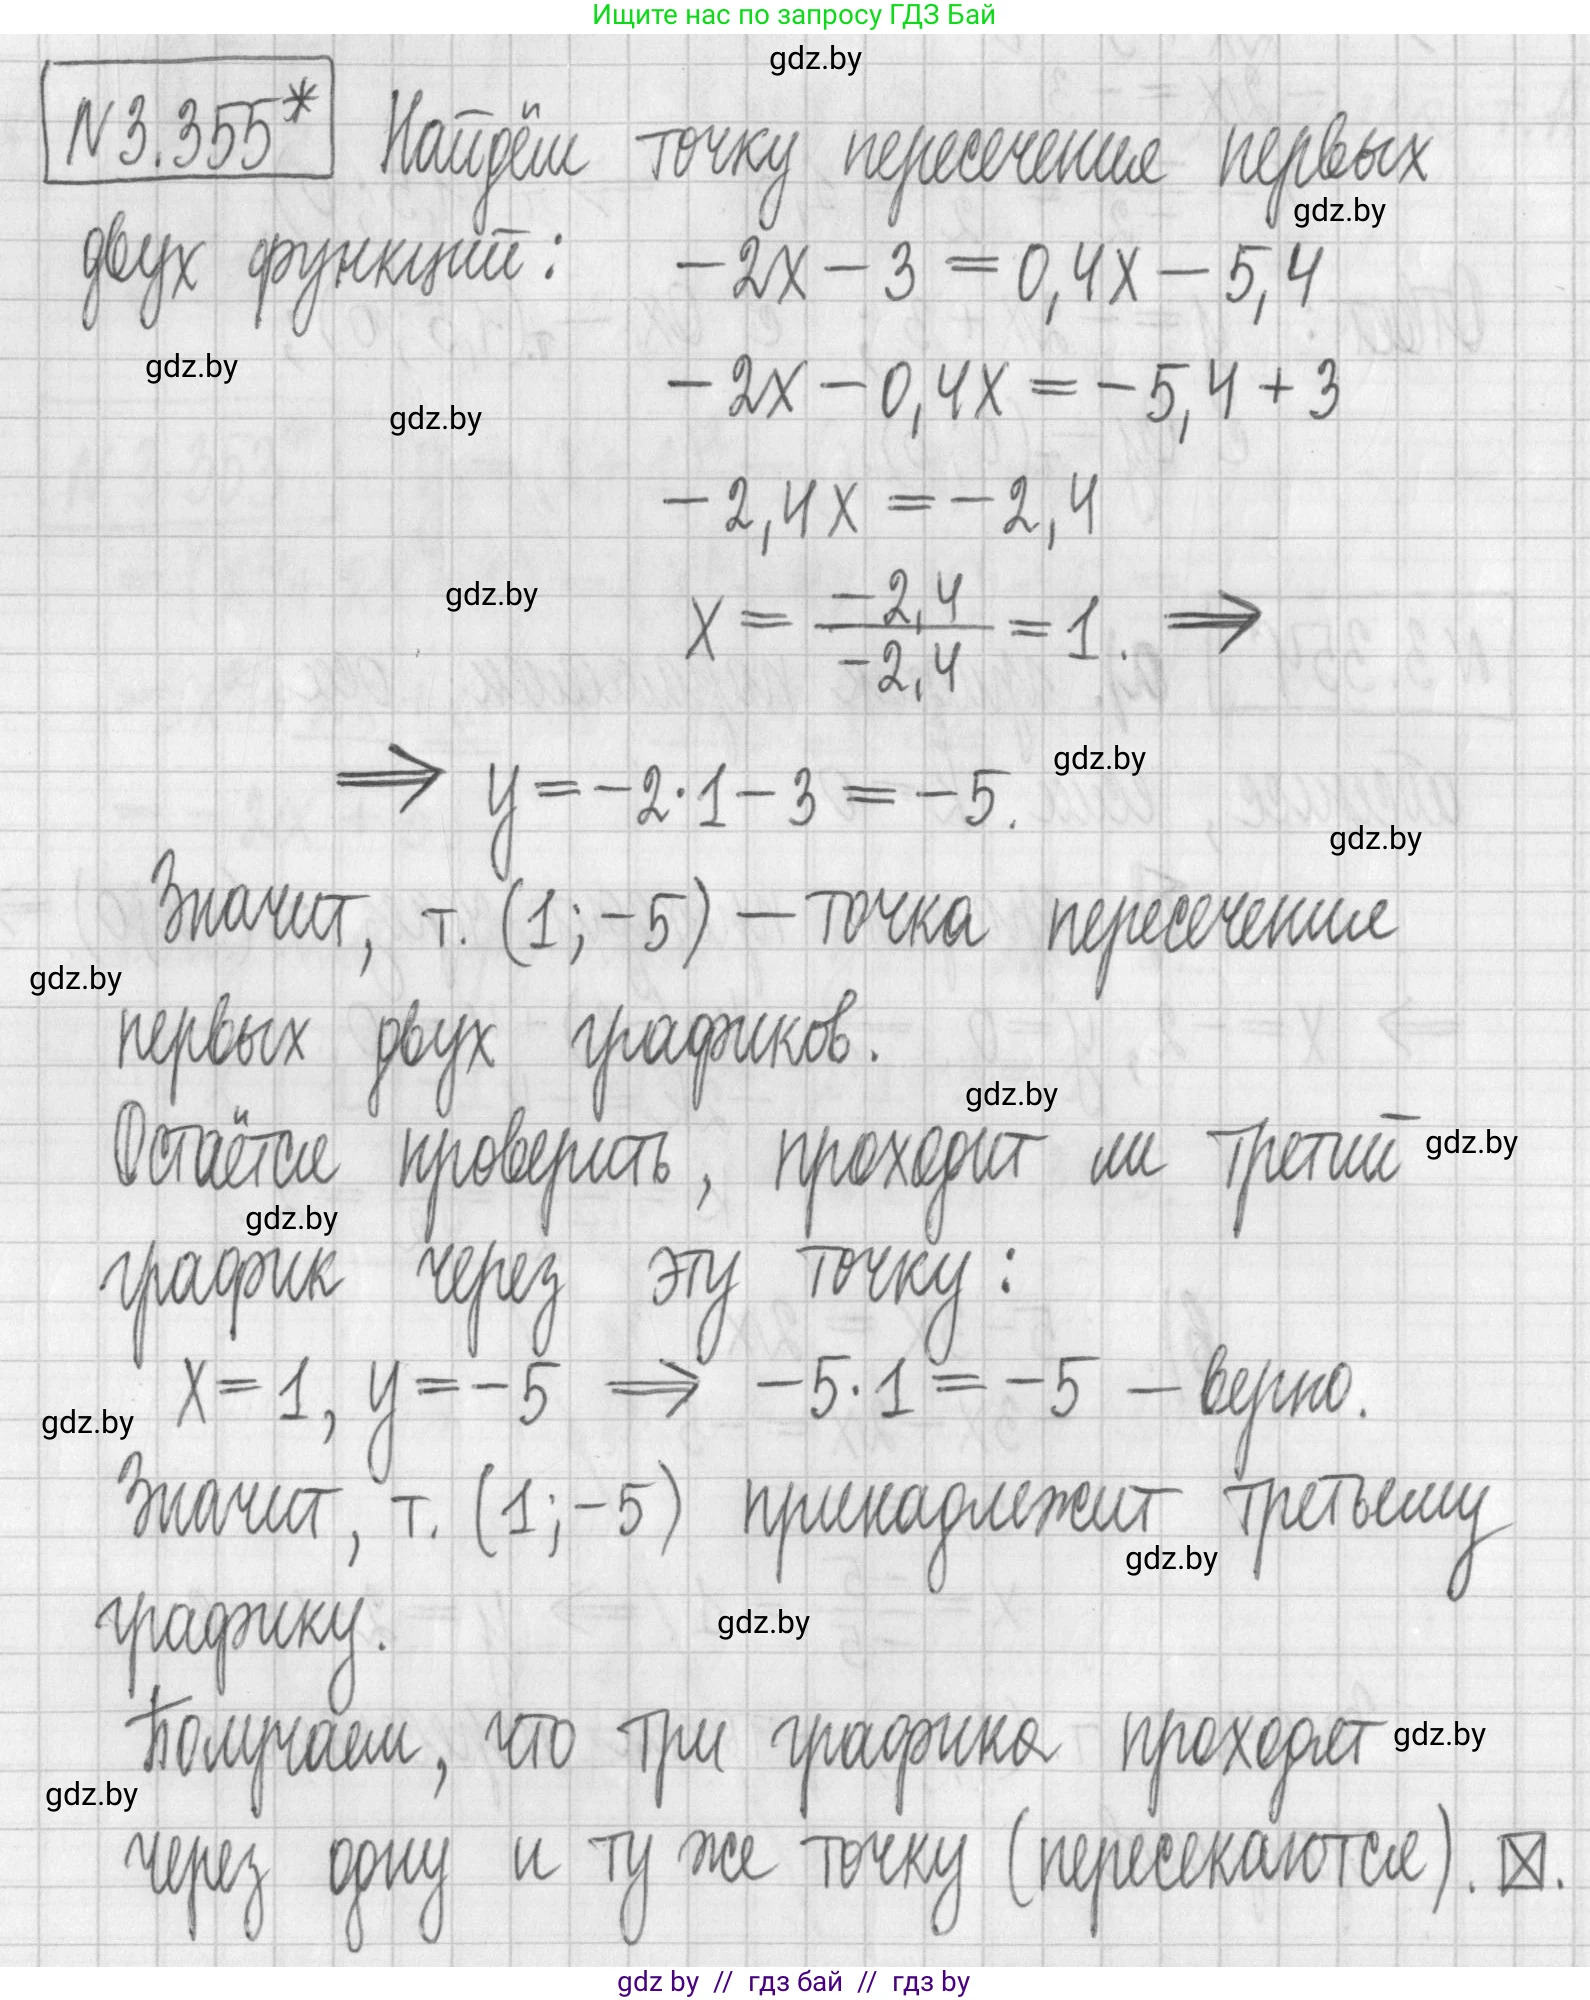 Ищите нас по запросу ГДЗ Бай
gdz.by
N3.355* Найдём точку пересечения первых
gdz.by
двух функций: -2x-3=0,4x-5,4
gdz.by
-2x-0,4x=-5,4+3
gdz.by
-2,4x=-2,4
gdz.by
x=\frac{-2,4}{-2,4}=1. ⇒
gdz.by
⇒ y=-2·1-3=-5.
gdz.by
Значит, т. (1;-5) — точка пересечения
gdz.by
первых двух графиков.
gdz.by
Остаётся проверить, проходит ли третий
gdz.by
gdz.by
график через эту точку:
x=1, y=-5 ⇒ -5·1=-5 — верно.
gdz.by
Значит, т. (1;-5) принадлежит третьему
gdz.by
графику.
gdz.by
Получаем, что три графика проходят
gdz.by
gdz.by
через одну и ту же точку (пересекаются). ☒.
gdz by // гдз бай // гдз by